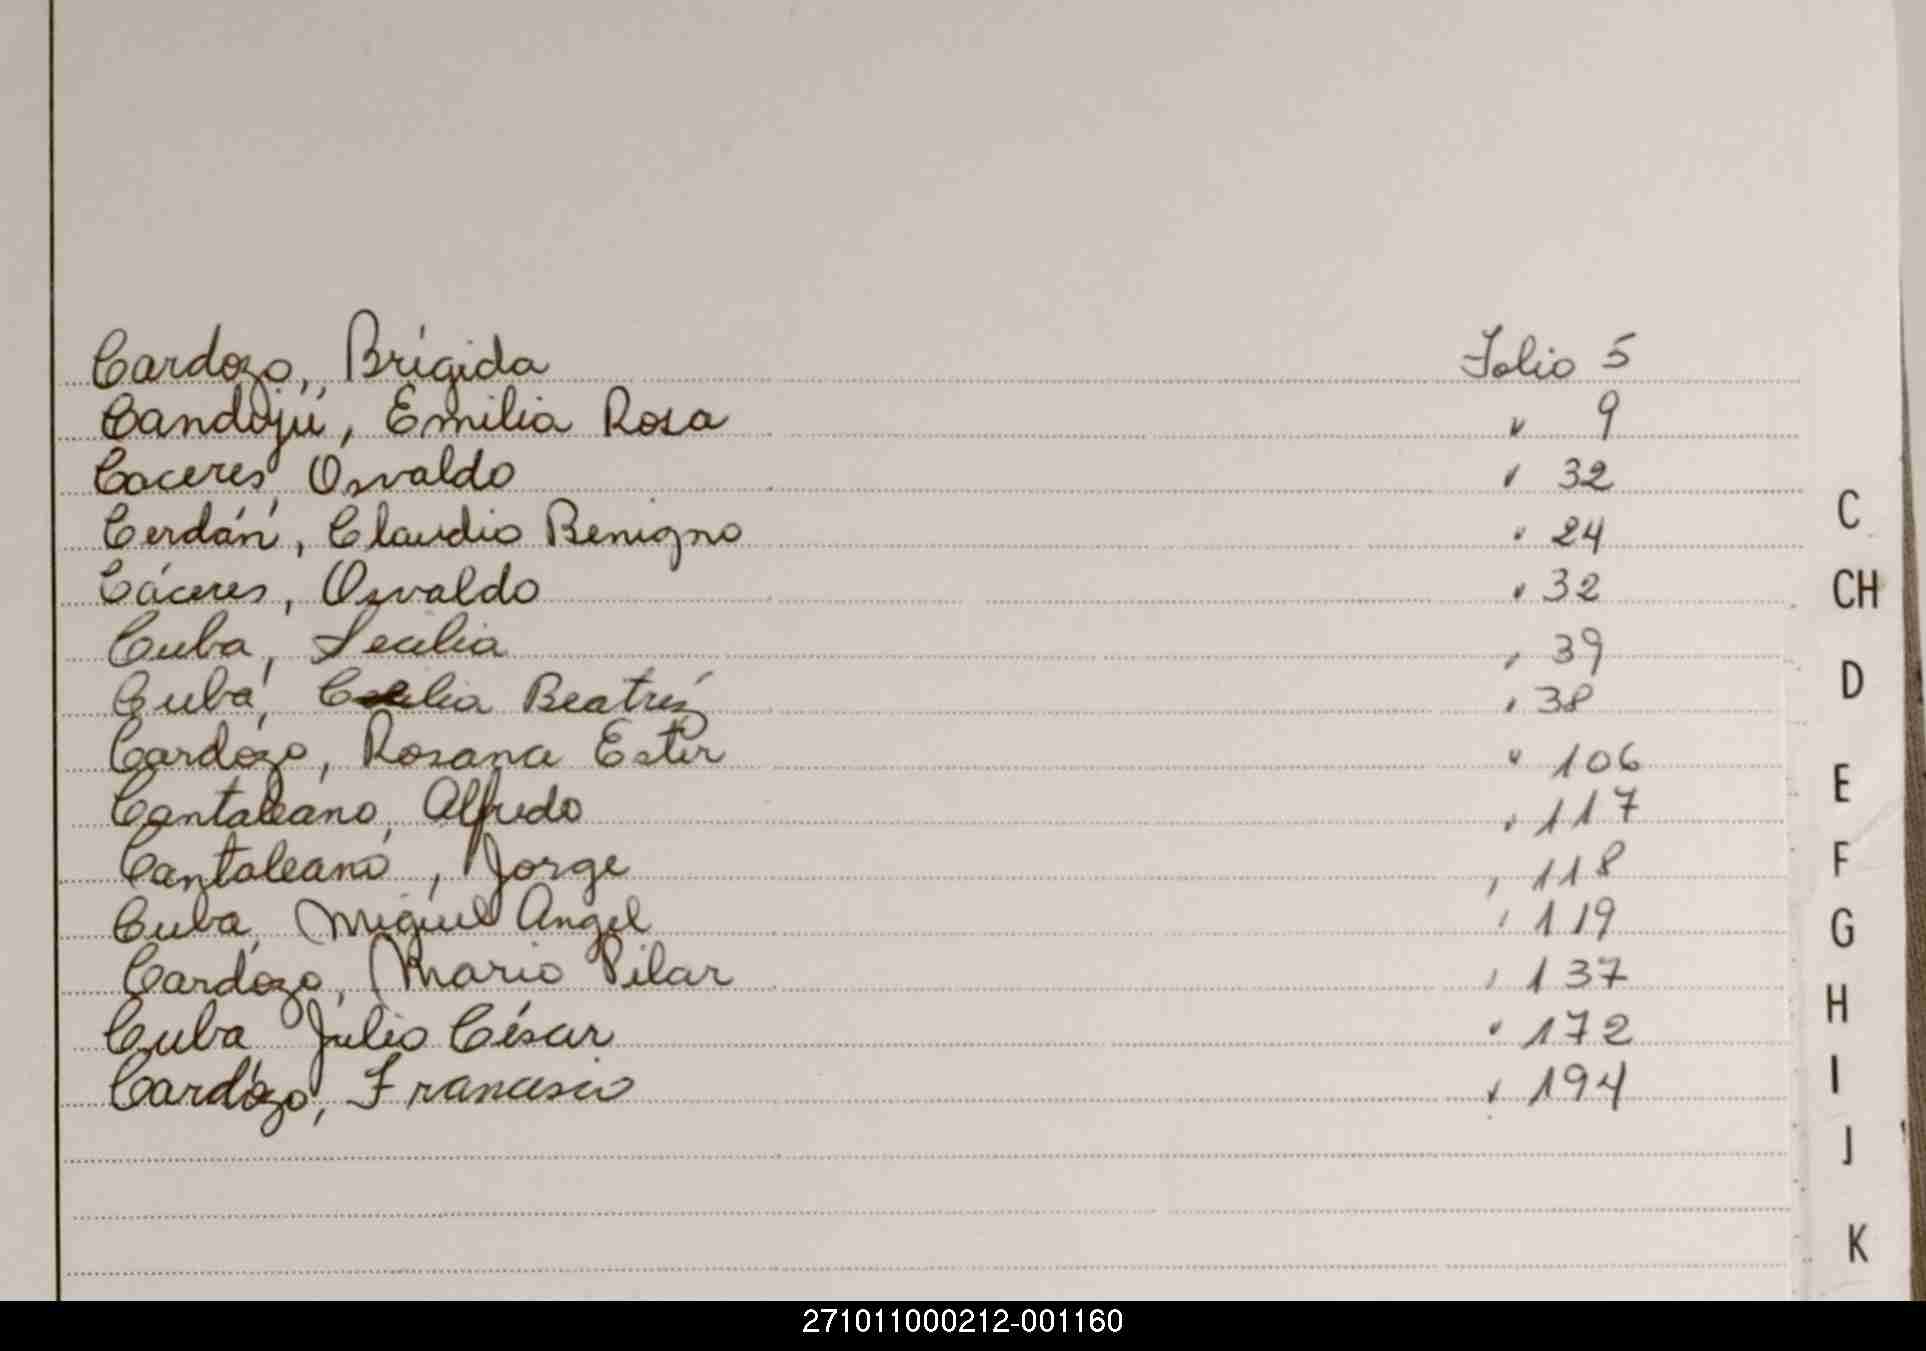 Cardozo, Brígida Folio 5
Candojú, Emilia Rosa " 9
Caceres, Osvaldo " 32
Cerdán, Claudio Benigno " 24
Cáceres, Osvaldo " 32
Cuba, Secilia " 39
Cuba, Cecilia Beatríz " 38
Cardozo, Rosana Ester " 106
Cantaleano, Alfredo " 117
Cantaleano, Jorge " 118
Cuba, Miguel Angel " 119
Cardozo, Mario Pilar " 137
Cuba Julio César " 172
Cardózo, Francisco " 194
C
CH
D
E
F
G
H
I
J
K
271011000212-001160